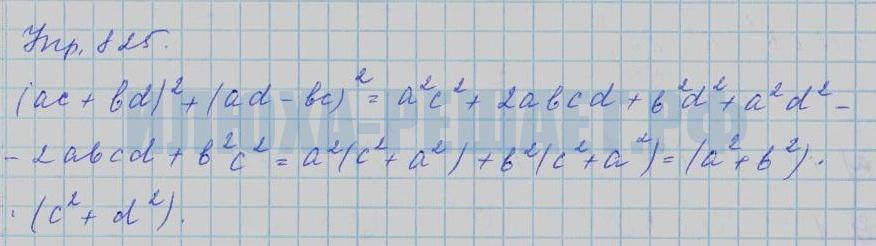 Упр. 825.
(ac + bd)² + (ad − bc)² = a²c² + 2abcd + b²d² + a²d² −
− 2abcd + b²c² = a²(c² + a²) + b²(c² + a²) = (a² + b²) ·
· (c² + d²).
ХПЕОХА-РЕШАЕТ.РФ